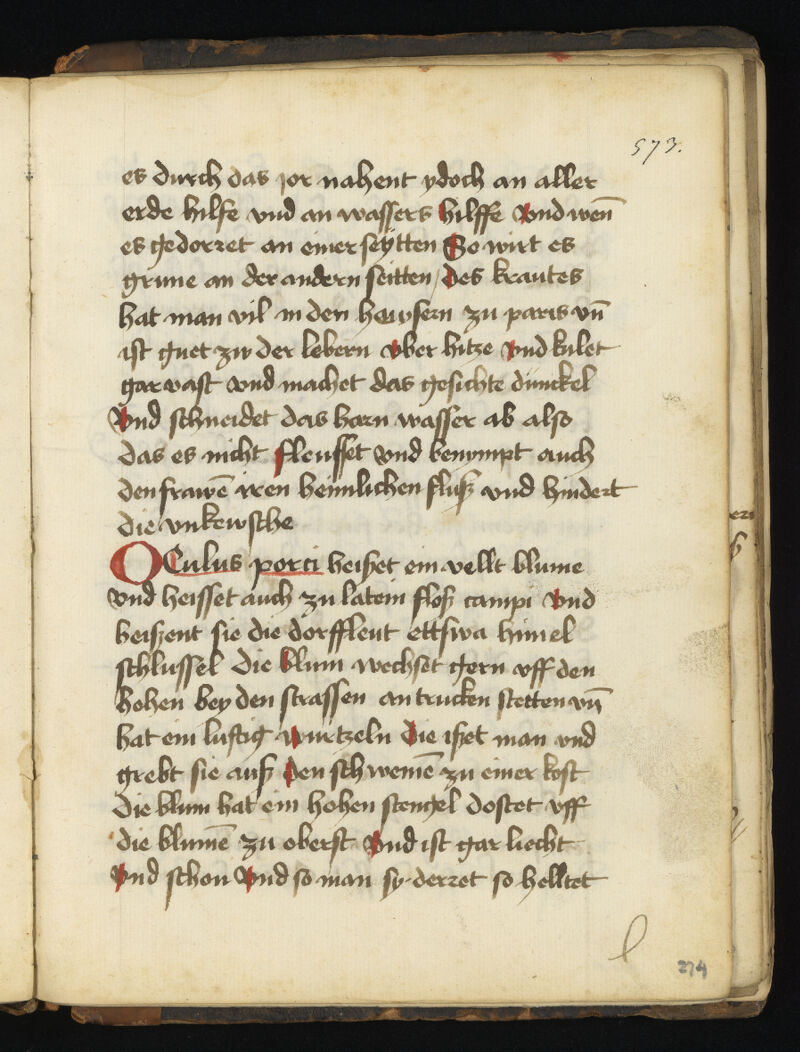 573.
es durch das jor nahent ydoch an aller
erde hilfe vnd an wassers hilffe Vnd wen̄
es gedorret an einer seÿtten So wirt es
grune an der andern seitten / des krautes
hat man vil in den hewsern zu paris vn̄
ist guet zu der lebern vber hitze vnd kulet
gar vast vnd machet das gesichte dunckel
Vnd schneidet das harn wasser ab also
das es nicht fleusset vnd benympt auch
den frawē iren heimlichen fluß vnd hindert
die vnkewsche
OCulus porci heisset ein vellt blume
vnd heisset auch zu latein floß campi vnd
heissent sie die dorffleut ettswa himel
schlussel Die blum wechset gern vff den
hohen bey den strassen an trucken stetten vn̄
hat ein lustig wurtzeln die isset man vnd
grebt sie auß den schweinē zu einer kost
Die blum hat ein hohen stengel dostet vff
die blumē zu oberst Vnd ist gar liecht
Vnd schon Vnd so man sy derret so helltet
274